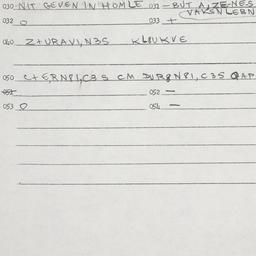 030 NIT GEVEN IN HOMLE 031 — BUT A, ZE-NES
VAKSN LEBN
032 O 033 +
040 Z+URAVI,N3S KLOUKVE
050 C+E,RNPI,C3S CM DURPNPI,C3S QAP
051 052 —
053 O 054 —